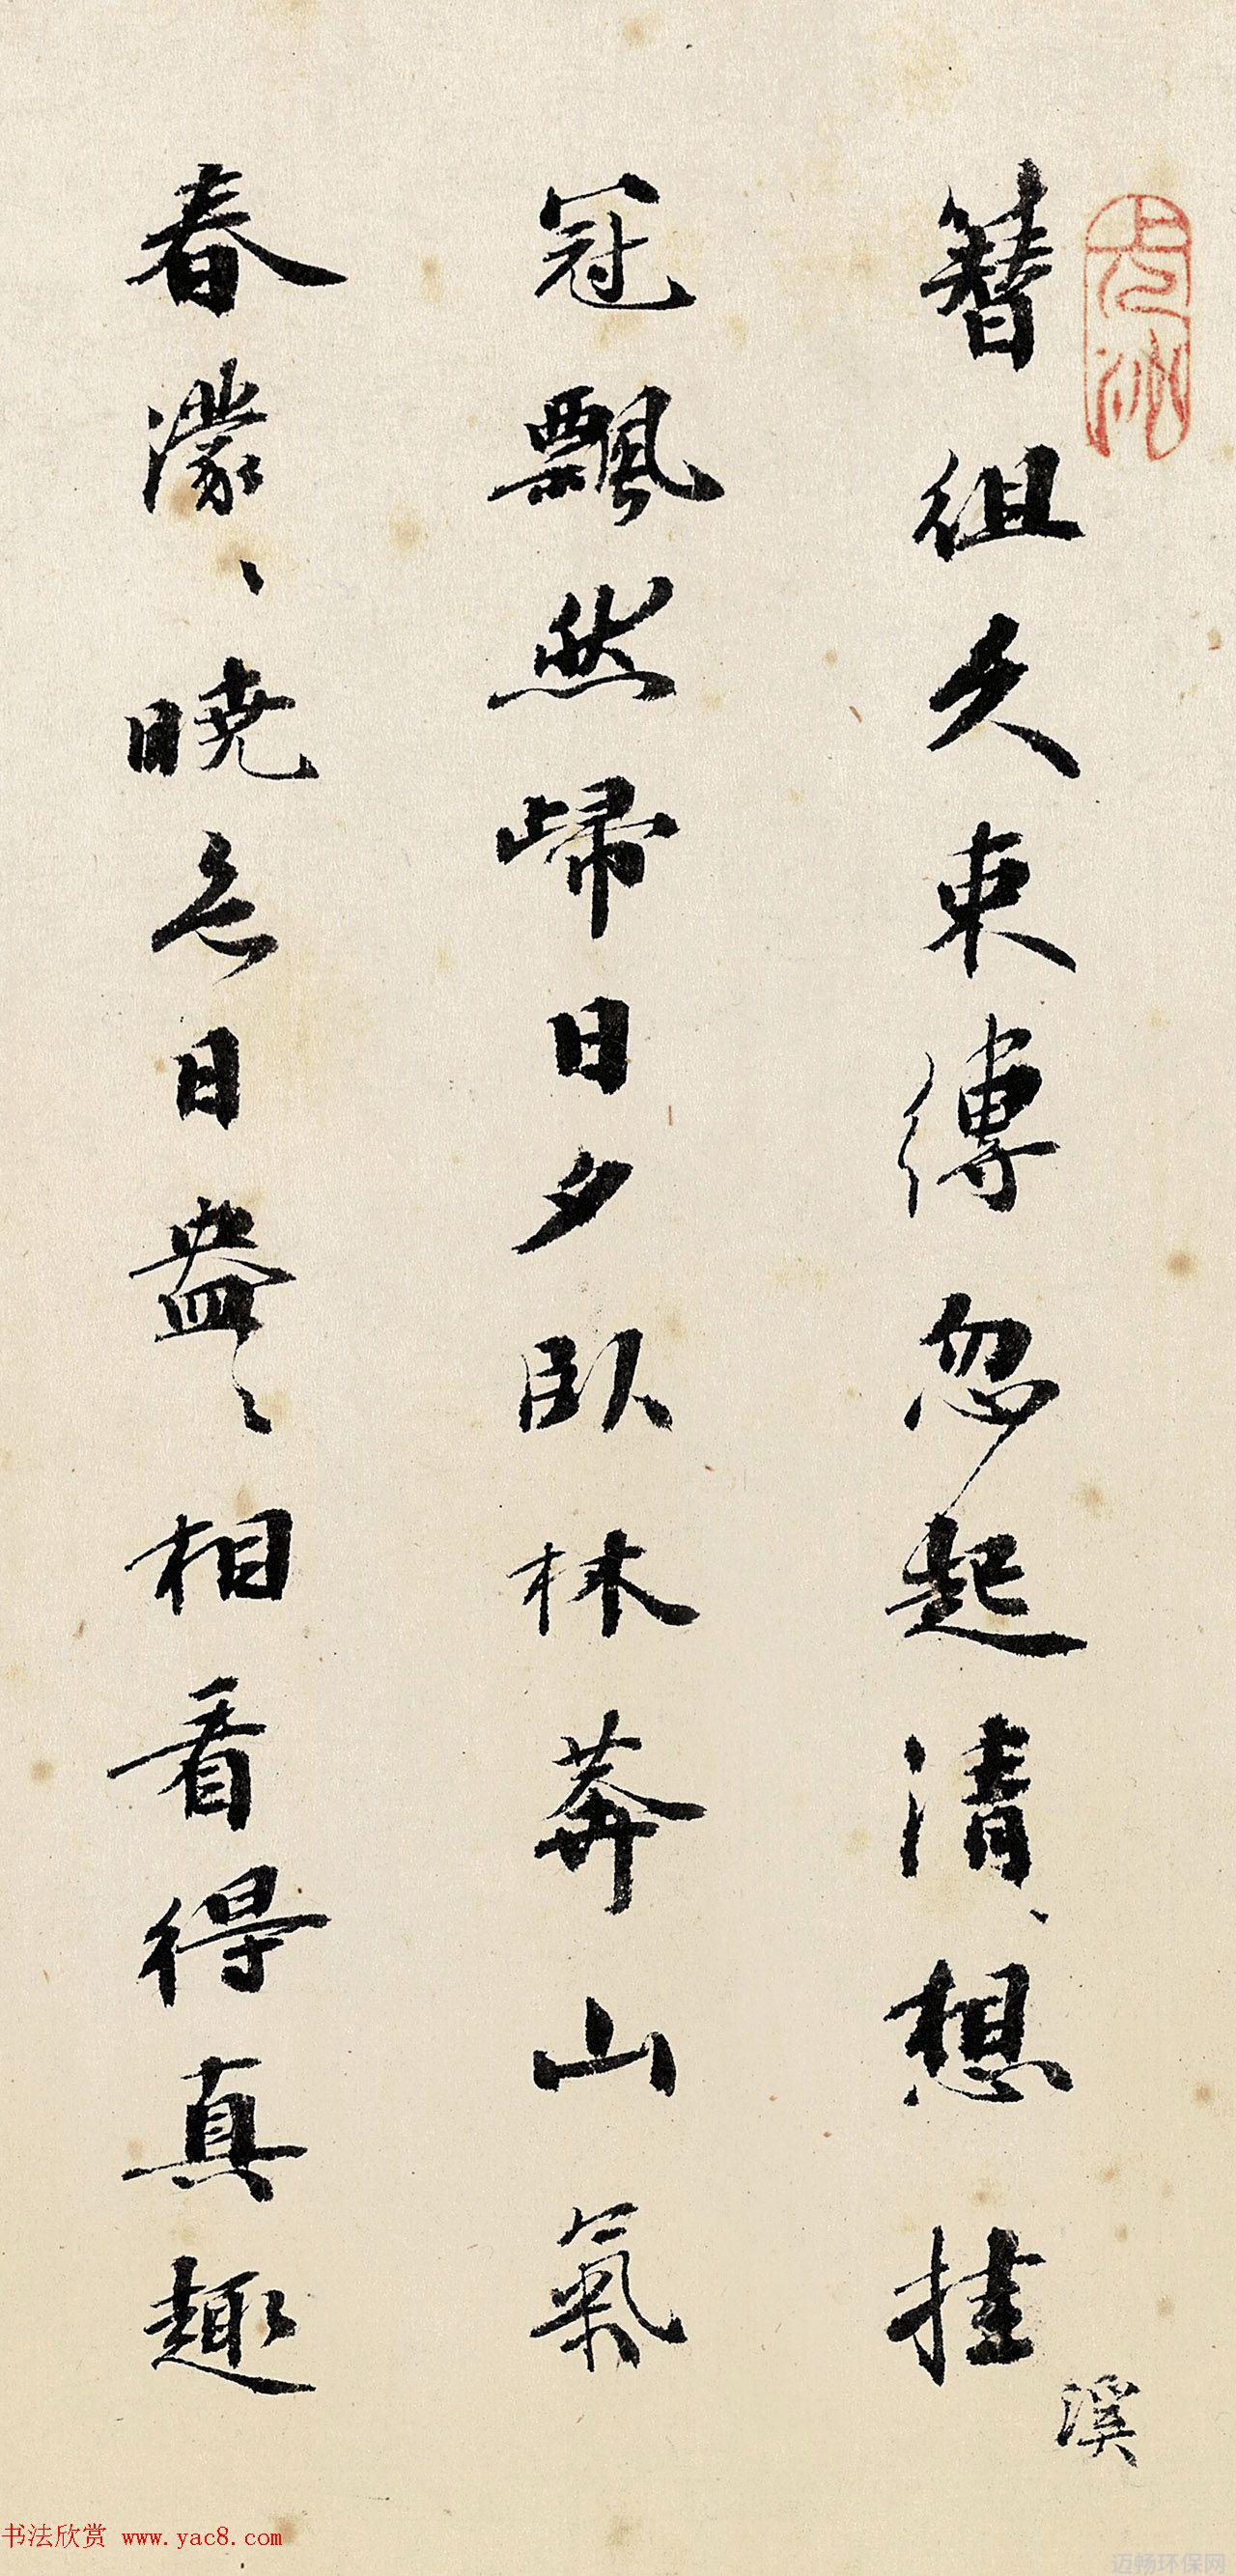 簪組久束縛忽起清、想挂
溪
冠飄然歸日夕臥林莽山氣
春濛、曉色日盎、相看得真趣
书法欣赏 www.yac8.com
迈畅环保网